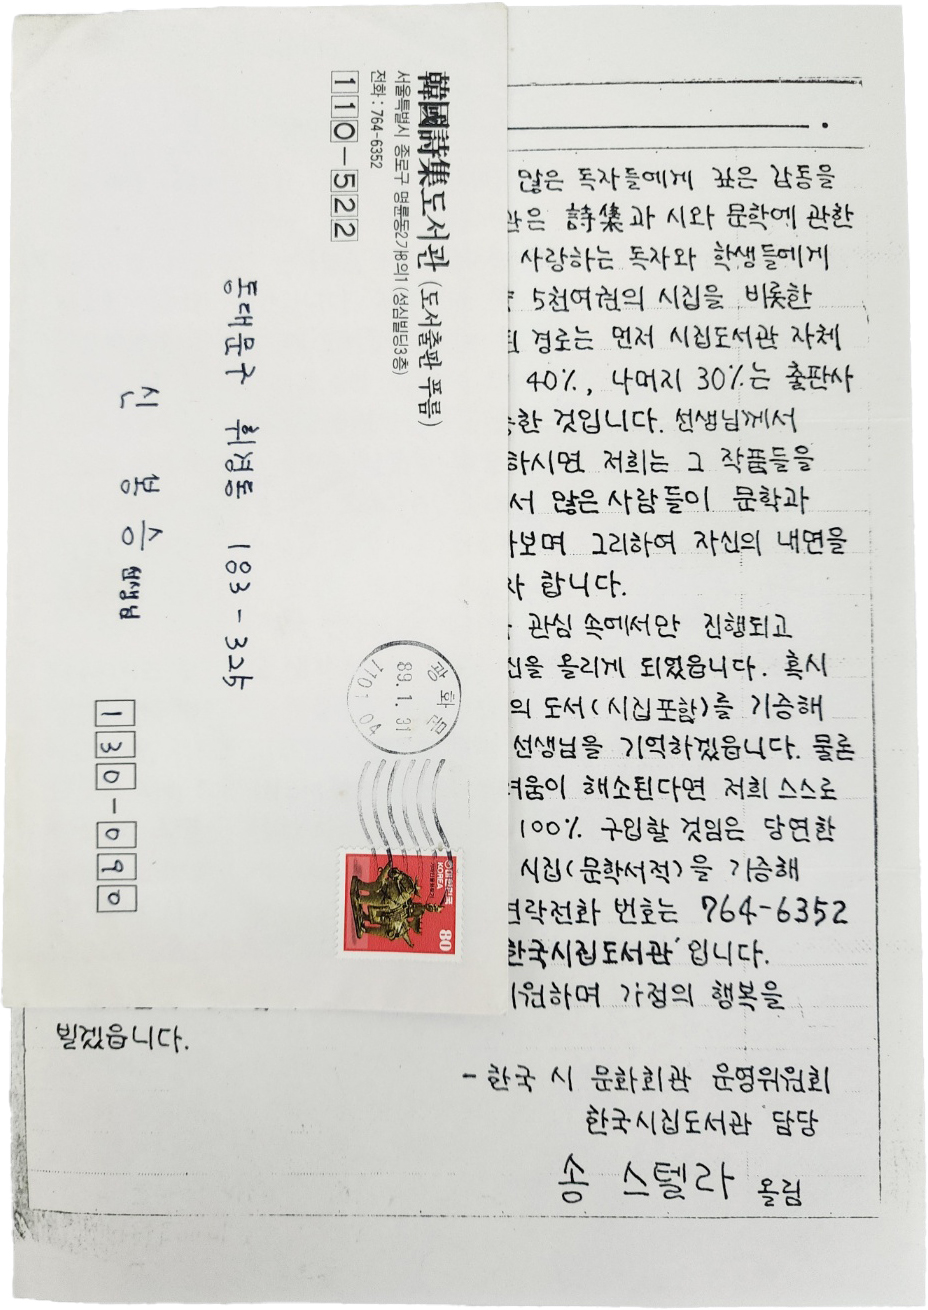 韓國詩集도서관 (도서출판 푸름)
서울특별시 종로구 명륜동2가8의1 (성심빌딩3층)
전화 : 764-6352
110-522
동대문구 휘경동 183-325
신봉승 선생님
130-090
광화문
89.1.31
110
04
대한민국
KOREA
80
많은 독자들에게 깊은 감동을
관은 詩集과 시와 문학에 관한
사랑하는 독자와 학생들에게
5천여권의 시집을 비롯한
경로는 먼저 시집도서관 자체
40%, 나머지 30%는 출판사
한 것입니다. 선생님께서
하시면 저희는 그 작품들을
서 많은 사람들이 문학과
보며 그리하여 자신의 내면을
자 합니다.
관심 속에서만 진행되고
신을 올리게 되었읍니다. 혹시
의 도서(시집포함)를 기증해
선생님을 기억하겠읍니다. 물론
려움이 해소된다면 저희 스스로
100% 구입할 것임은 당연한
시집(문학서적)을 기증해
연락전화 번호는 764-6352
한국시집도서관' 입니다.
기원하며 가정의 행복을
빌겠읍니다.
- 한국 시 문화회관 운영위원회
한국시집도서관 담당
송 스텔라 올림